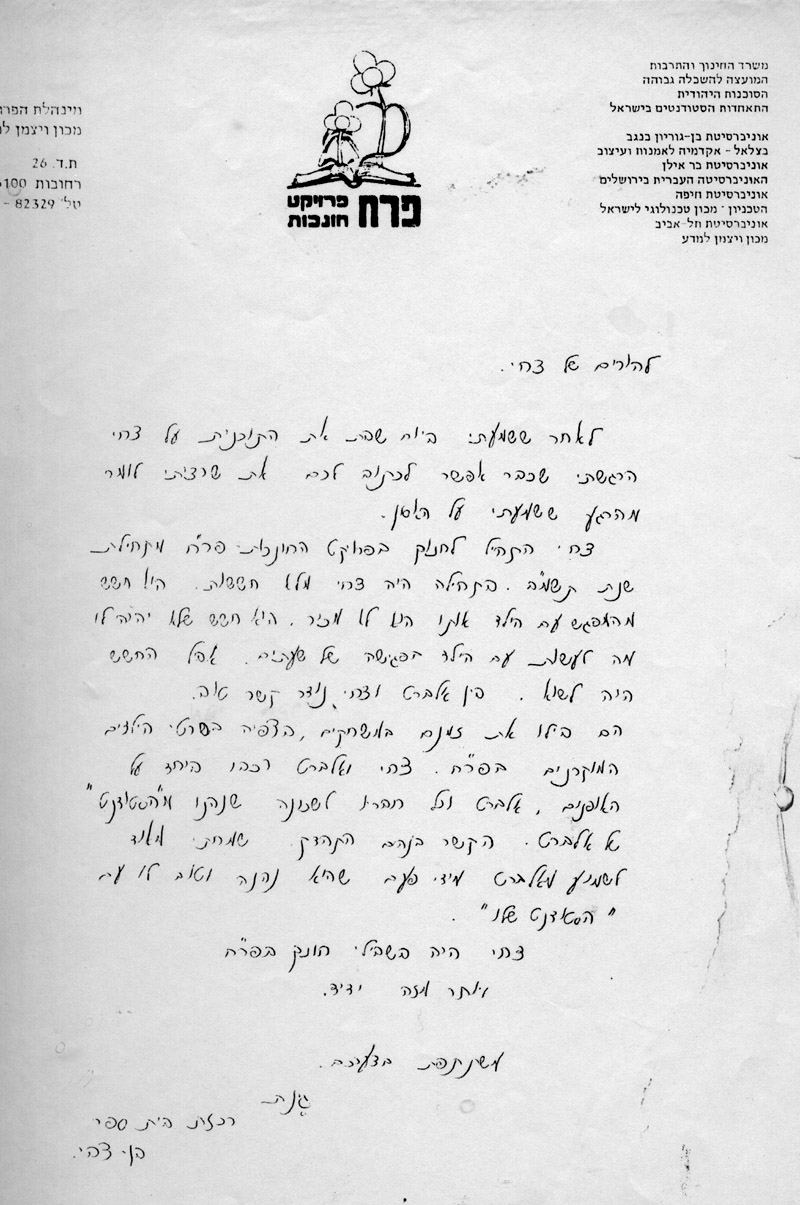 משרד החינוך והתרבות
המועצה להשכלה גבוהה
הסוכנות היהודית
התאחדות הסטודנטים בישראל
אוניברסיטת בן-גוריון בנגב
בצלאל - אקדמיה לאמנות ועיצוב
אוניברסיטת בר אילן
האוניברסיטה העברית בירושלים
אוניברסיטת חיפה
הטכניון - מכון טכנולוגי לישראל
אוניברסיטת תל-אביב
מכון ויצמן למדע
פרח פרויקט
חונכות
מינהלת הפרו
מכון ויצמן למ
ת.ד. 26
רחובות 6100
טל' 82329 -
להורים של צחי.
לאחר ששמעתי ביום שבת את התוכנית על צחי
הרגשתי שכבר אפשר לכתוב לכם את שרציתי לומר
מהרגע ששמעתי על האסון.
צחי התחיל לחנוך בפרויקט החונכות פר"ח מתחילת
שנת תשמ"ה. בתחילה היה צחי מלא חששות. הוא חשש
מהמפגש עם הילד אותו הוא לא מכיר. הוא חשש שלא יהיה לו
מה לעשות עם הילד בפגישה של שעתיים. אבל החשש
היה לשוא. בין אלברט וצחי נוצר קשר טוב.
הם בילו את זמנם במשחקים, בצפיה בסרטי הילדים
המוקרנים בפר"ח. צחי ואלברט רכבו ביחד על
האופנים, אלברט וכל חבריו לשכונה שנהנו מ"הסטודנט"
של אלברט. הקשר בניהם התהדק. שמחתי מאוד
לשמוע מאלברט מידי פעם שהוא נהנה וטוב לו עם
"הסטודנט שלו".
צחי היה בשבילי חונך בפר"ח
ויותר מזה ידיד.
משתתפת בצערכם.
רכזת בית ספר
בן צבי.